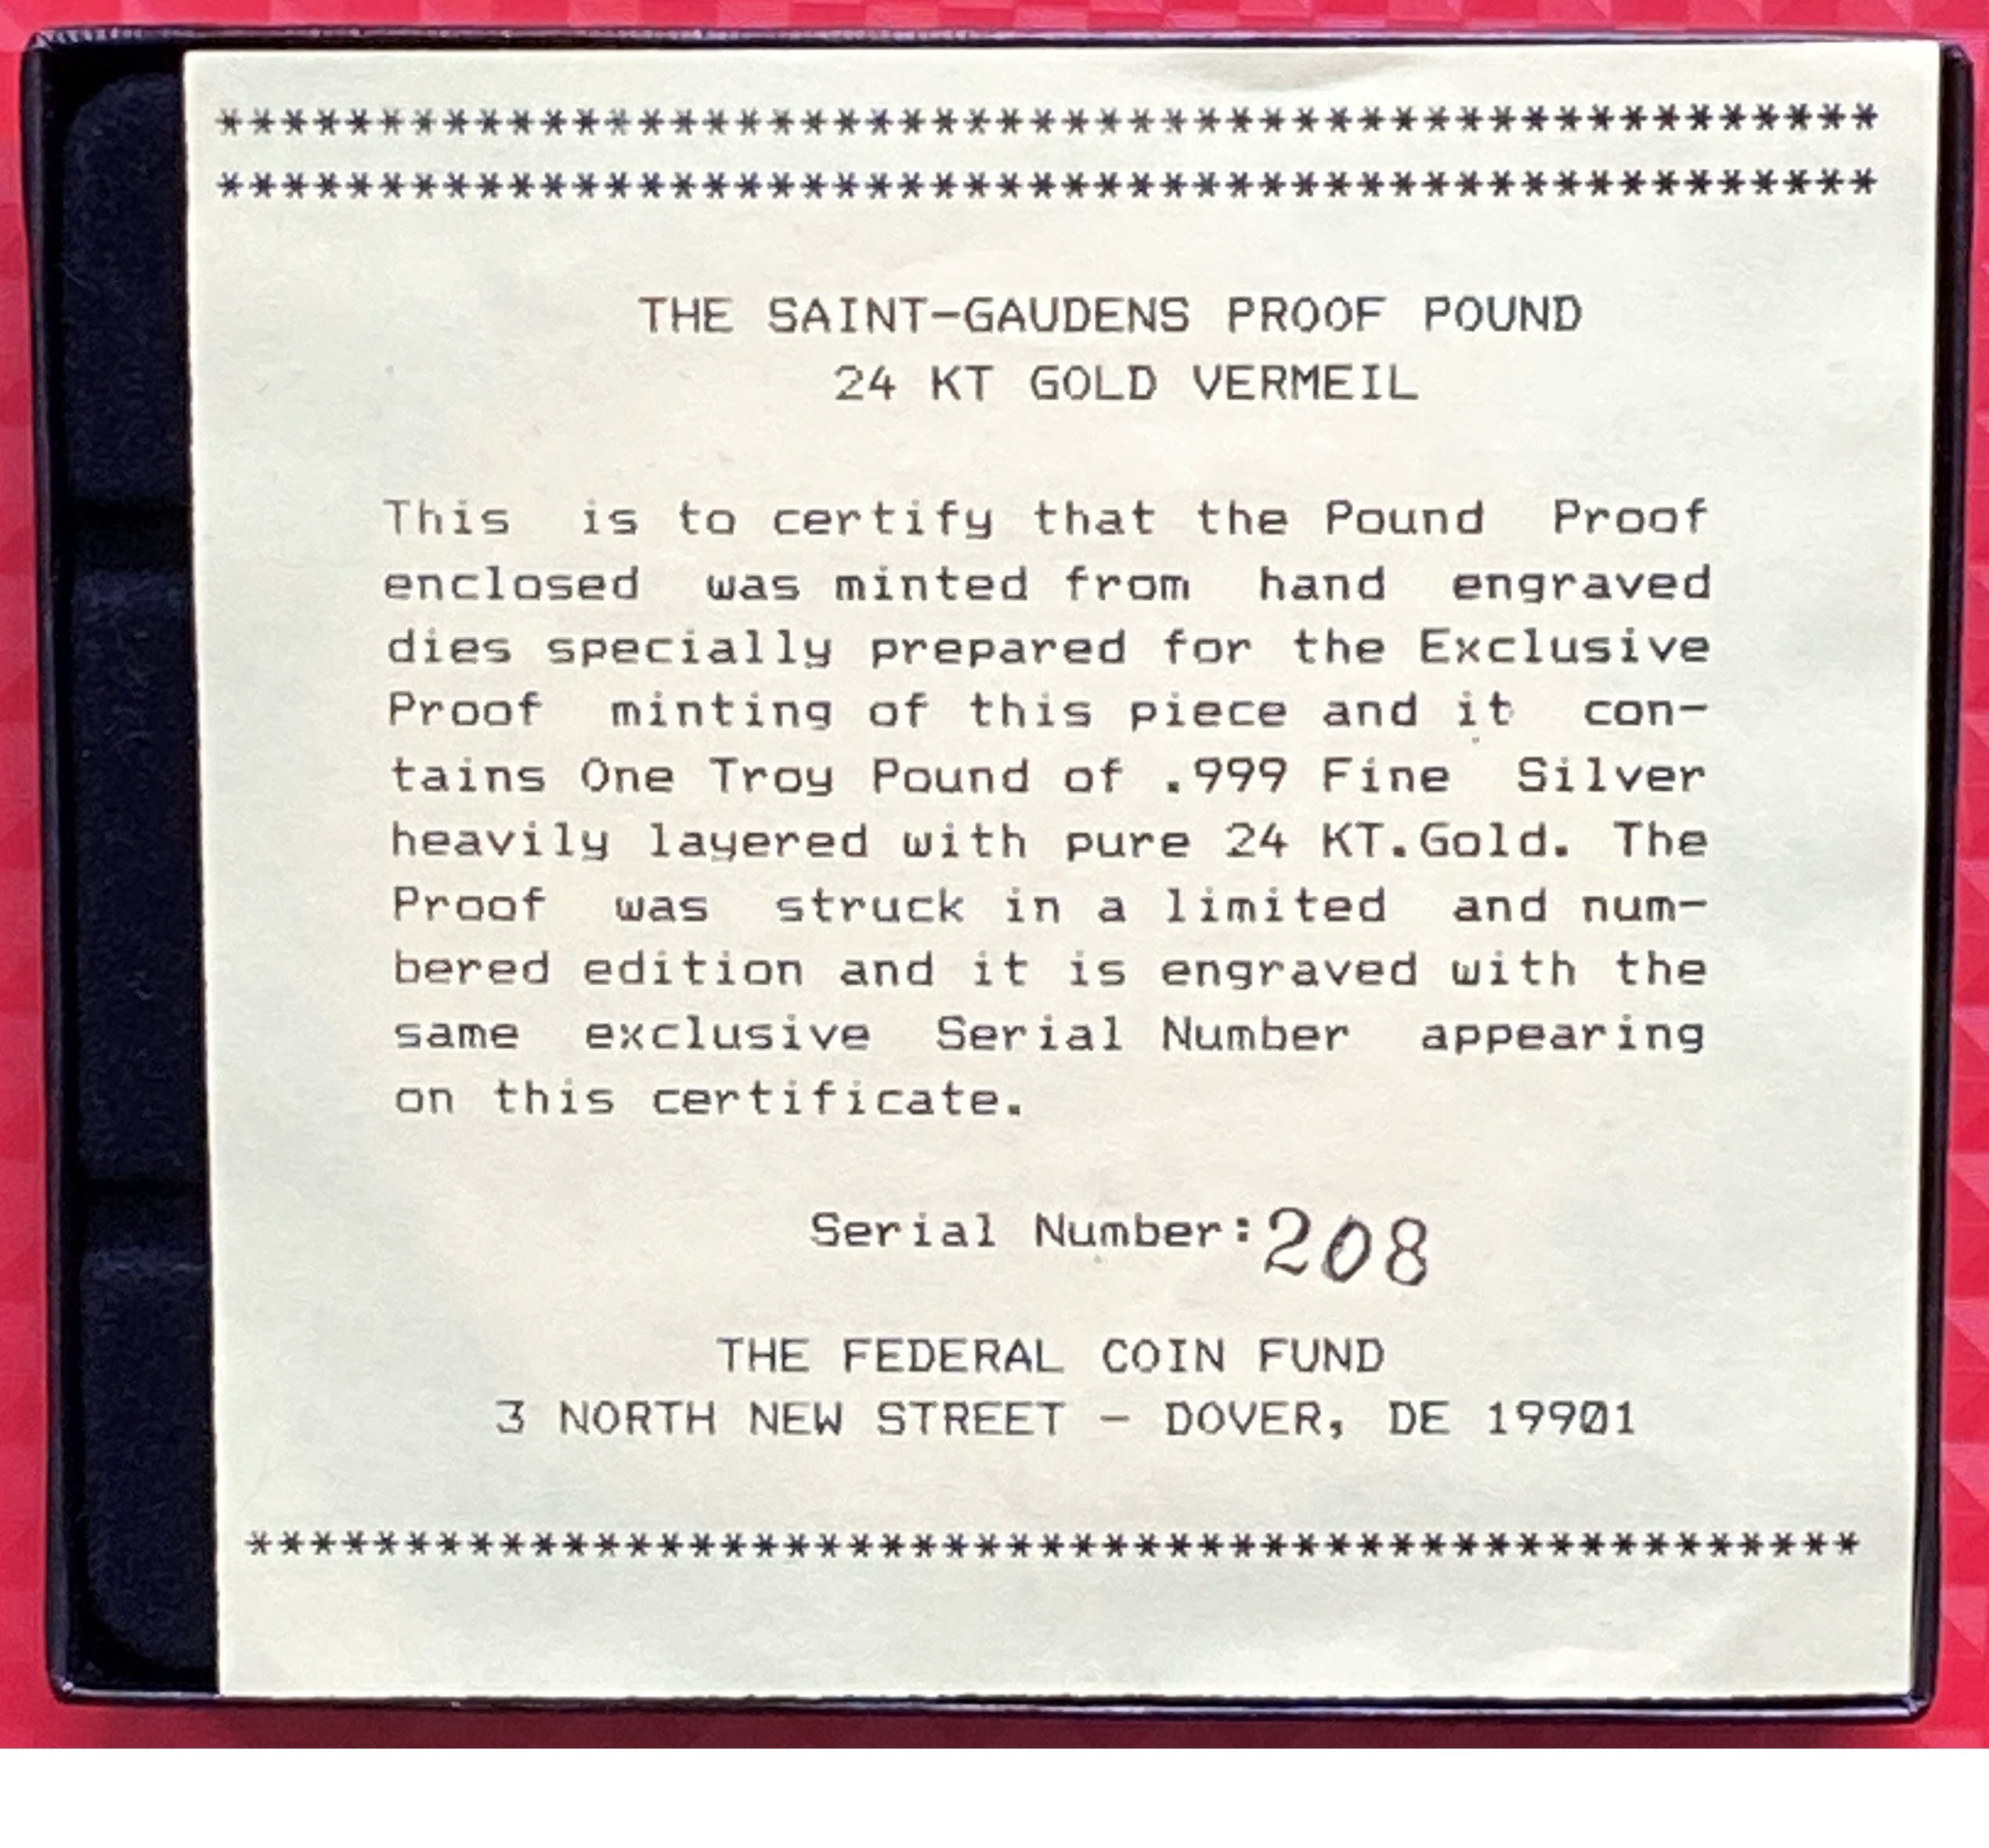 ***************************************************
***************************************************
THE SAINT-GAUDENS PROOF POUND
24 KT GOLD VERMEIL
This is to certify that the Pound Proof
enclosed was minted from hand engraved
dies specially prepared for the Exclusive
Proof minting of this piece and it con-
tains One Troy Pound of .999 Fine Silver
heavily layered with pure 24 KT.Gold. The
Proof was struck in a limited and num-
bered edition and it is engraved with the
same exclusive Serial Number appearing
on this certificate.
Serial Number:208
THE FEDERAL COIN FUND
3 NORTH NEW STREET - DOVER, DE 19901
***************************************************